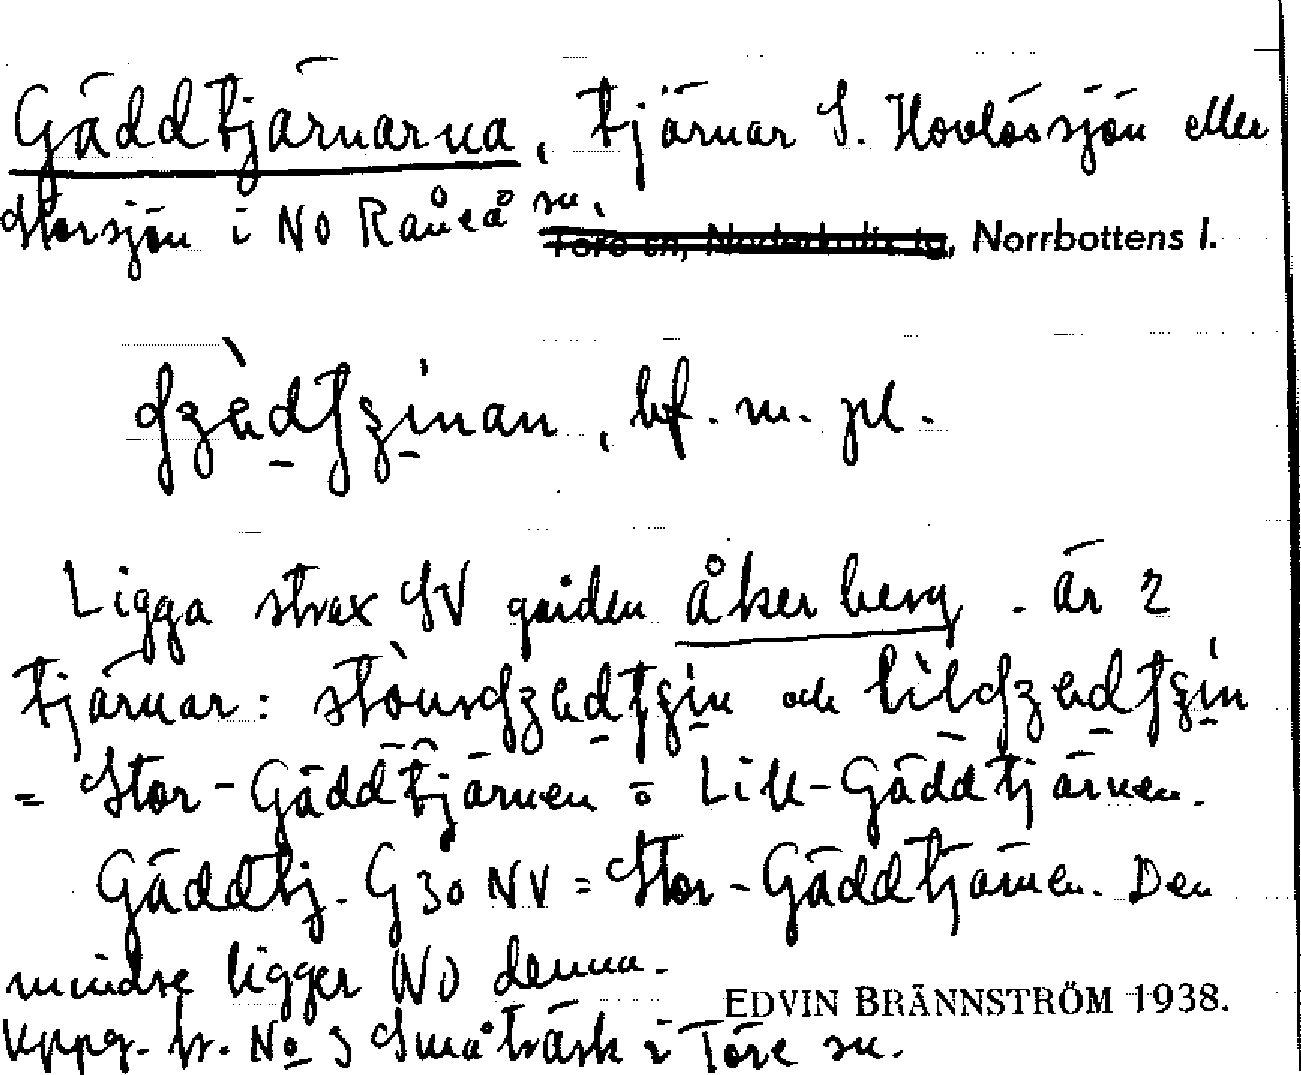 Gäddtjärnarna, tjärnar S. Hovlössjön eller
Storsjön i NO Råneå sn.
Töre sn, Nederkalix tg, Norrbottens l.
bf. m. pl.
Ligga strax SV gården Åkerberg. är 2
tjärnar: och
= Stor-Gäddtjärnen o Lill-Gäddtjärnen.
Gäddtj. G 30 NV = Stor-Gäddtjärnen. Den
mindre ligger NO denna.
EDVIN BRÄNNSTRÖM 1938.
Uppg. fr. No 3 Småträsk i Töre sn.